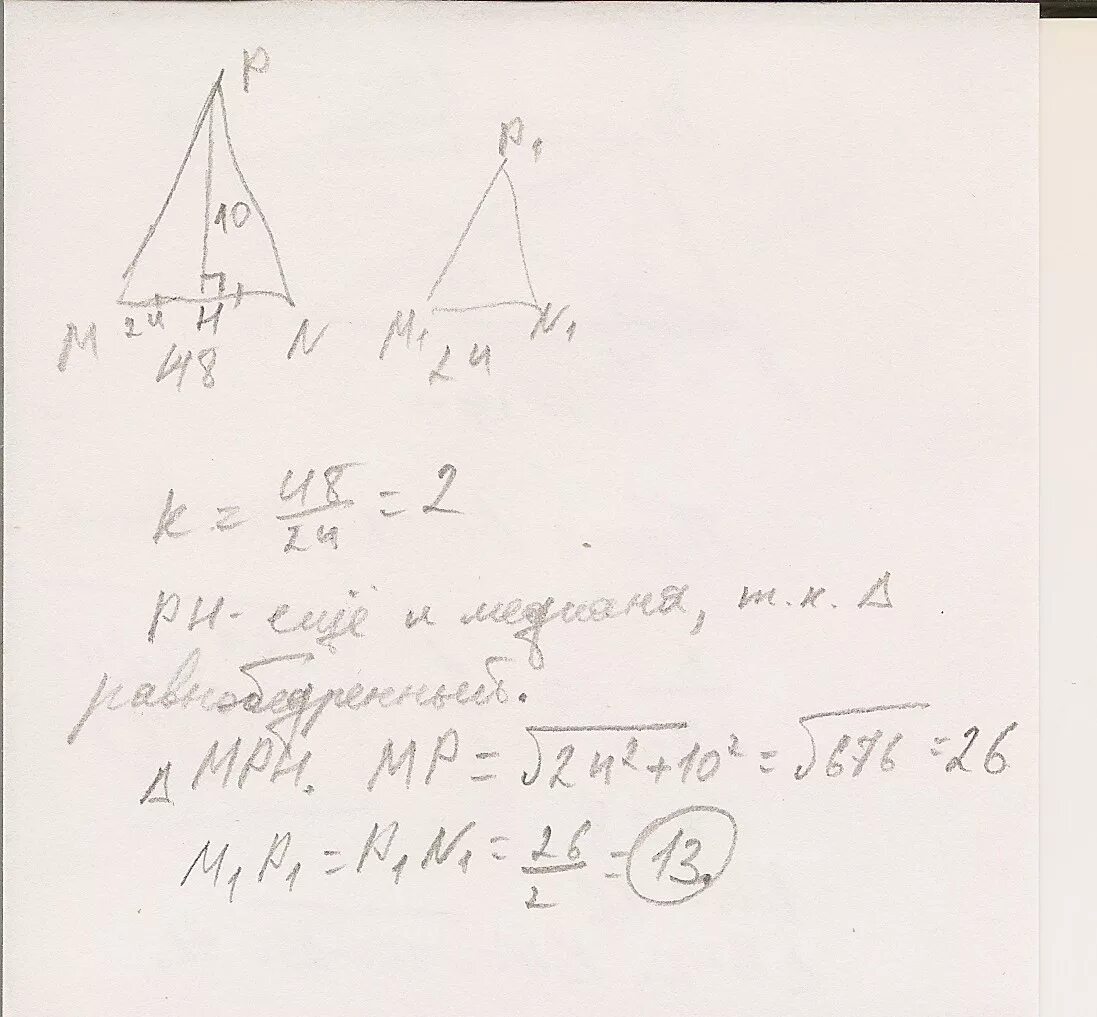 P
10
M 24 H N
48
P₁
M₁ N₁
24
k = 48/24 = 2
PH - ещё и медиана, т.к. Δ
равнобедренный.
Δ MPH. MP = √24²+10² = √676 = 26
M₁P₁ = P₁N₁ = 26/2 = 13.